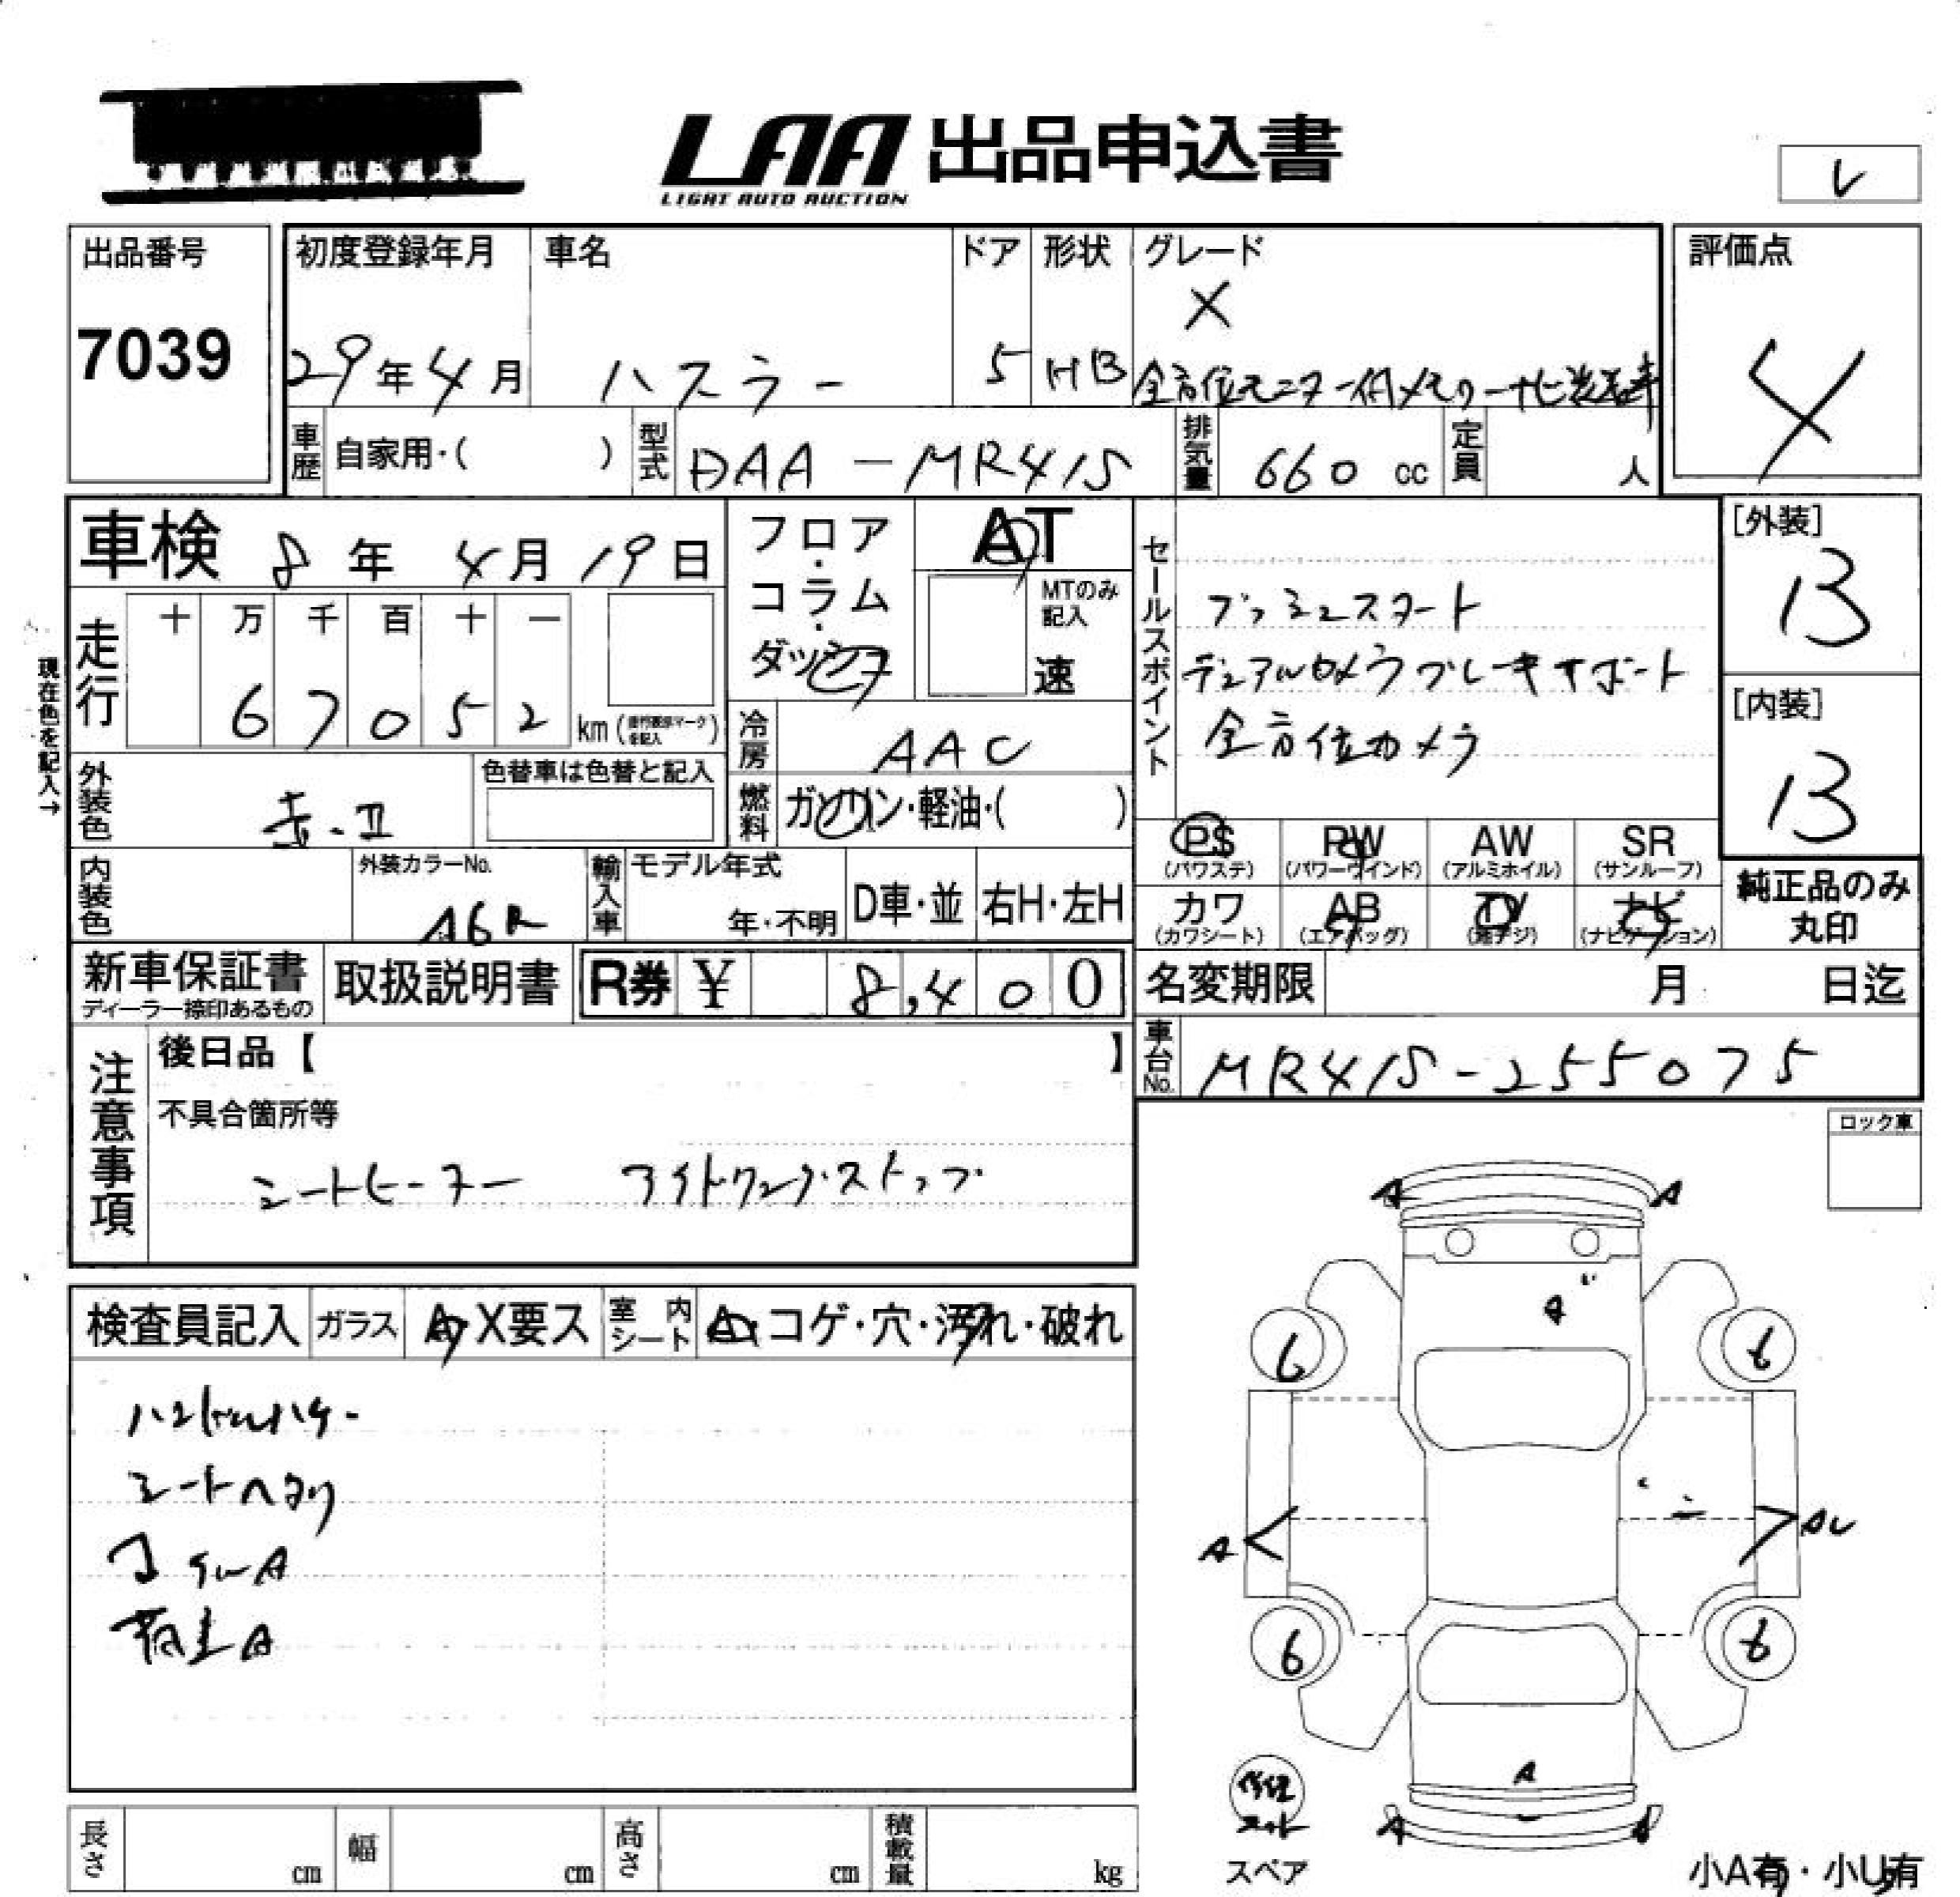 LAA 出品申込書
LIGHT AUTO AUCTION
レ
出品番号
7039
初度登録年月
29年4月
車名
ハスラー
ドア
5
形状
HB
グレード
X
全方位モニター付メモリーナビ装着車
評価点
4
車歴
自家用・( )
型式
DAA-MR41S
排気量
660 cc
定員
人
車検 8年 4月 19日
フロア・コラム・ダッシュ
AT
MTのみ記入
速
セールスポイント
プッシュスタート
デュアルカメラブレーキサポート
全方位カメラ
[外装]
B
[内装]
B
現在色を記入→
走行
十 万 千 百 十 一
6 7 0 5 2
km (走行表示マークを記入)
冷房
AAC
外装色
赤・II
色替車は色替と記入
燃料
ガソリン・軽油・( )
PS
(パワステ)
PW
(パワーウインド)
AW
(アルミホイル)
SR
(サンルーフ)
内装色
外装カラーNo.
A6R
輸入車
モデル年式
年・不明
D車・並
右H・左H
カワ
(カワシート)
AB
(エアバッグ)
TV
(地デジ)
ナビ
(ナビゲーション)
純正品のみ
丸印
新車保証書
ディーラー捺印あるもの
取扱説明書
R券 ¥ 8,400
名変期限
月 日迄
車台No.
MR41S-255075
注意事項
後日品【 】
不具合箇所等
シートヒーター アイドリングストップ
ロック車
検査員記入
ガラス
A・X要ス
室内シート
A・コゲ・穴・汚れ・破れ
ハンドルハゲ
シートヘタリ
コ
A
荷室A
A A
A
6 6
A
AU
6 6
A
A A
修理
キット
スペア
長さ
cm
幅
cm
高さ
cm
積載量
kg
小A有・小U有